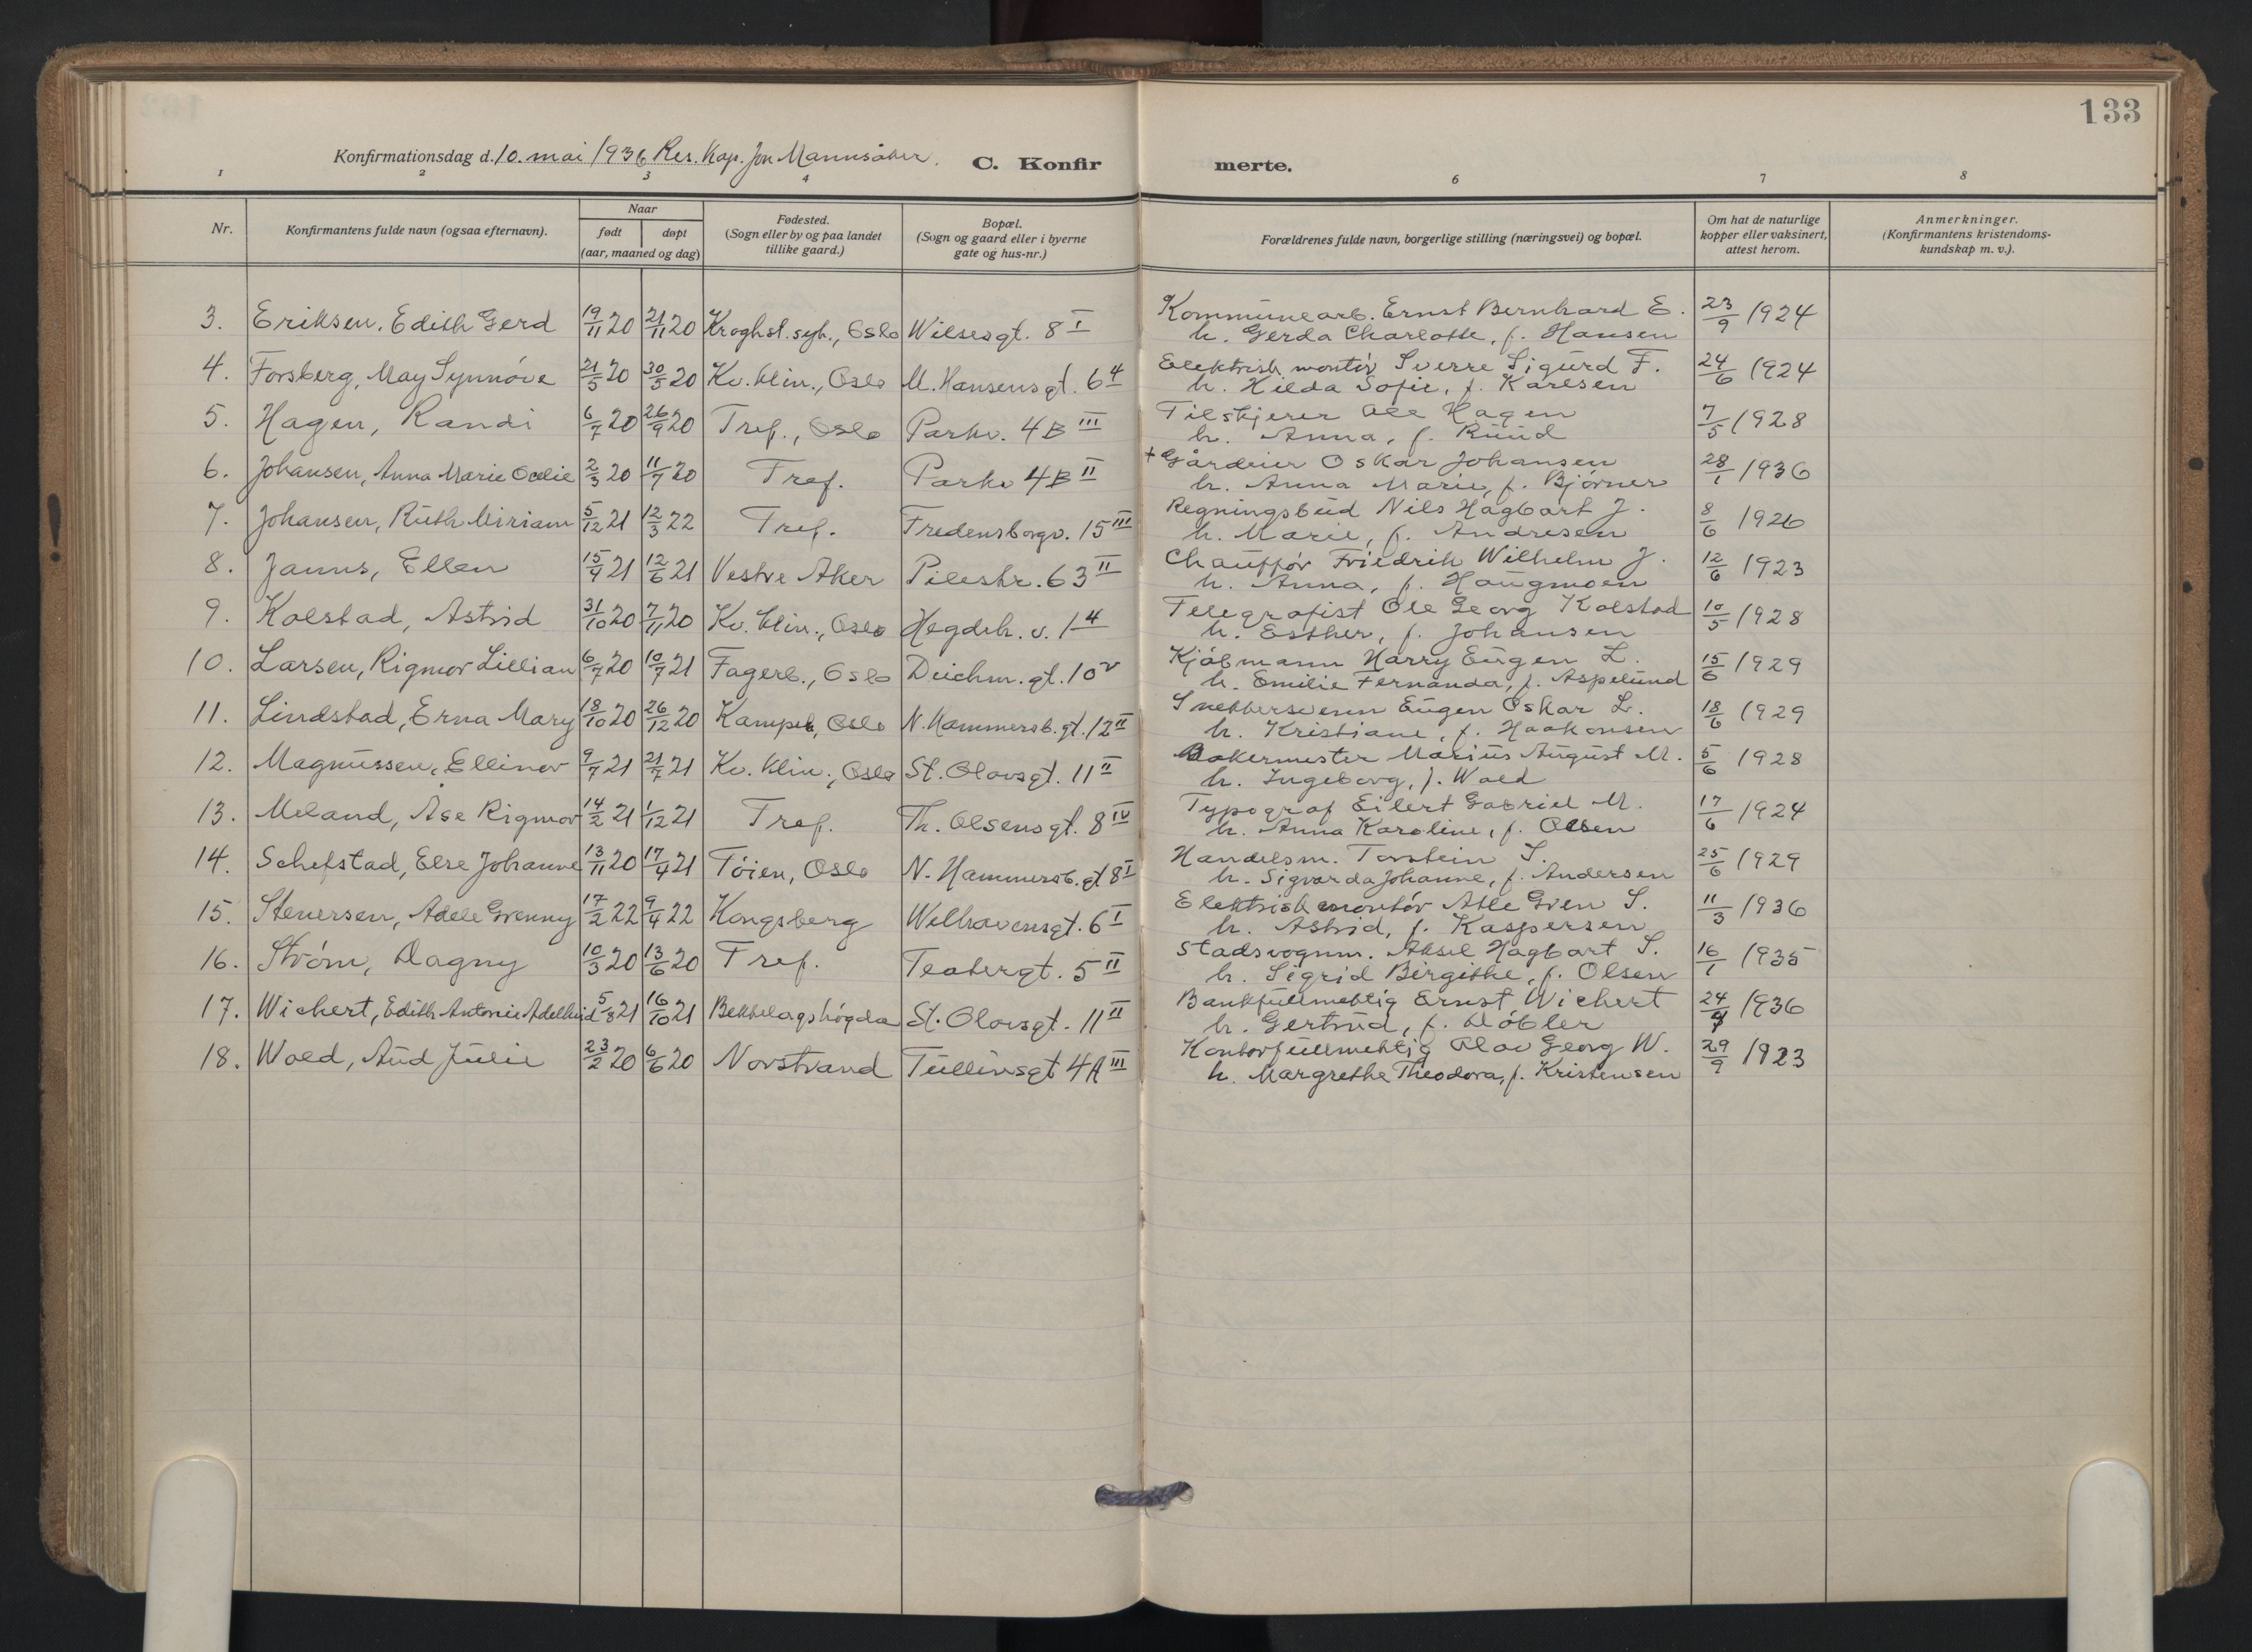 133
Konfirmationsdag d. 10. mai 1936 Res. Kap. Jon Mannsåker. C. Konfir merte.
1 2 3 4 6 7 8
Nr. Konfirmantens fulde navn (ogsaa efternavn). Naar født døpt (aar, maaned og dag) Fødested. (Sogn eller by og paa landet tillike gaard.) Bopæl. (Sogn og gaard eller i byerne gate og hus-nr.) Forældrenes fulde navn, borgerlige stilling (næringsvei) og bopæl. Om hat de naturlige kopper eller vaksinert, attest herom. Anmerkninger. (Konfirmantens kristendoms-kundskap m. v.).
3. Eriksen, Edith Gerd 19/11 20 21/11 20 Kroghst. syh., Oslo Wilsesgt. 8 I Kommunearb. Ernst Bernhard E. 23/9 1924
h. Gerda Charlotte, f. Hansen
4. Forsberg, May Synnöve 21/5 20 30/5 20 Kv. klin., Oslo M. Hansensgt. 6 4 Elektrisk montör Sverre Sigurd F. 24/6 1924
h. Hilda Sofie, f. Karlsen
5. Hagen, Randi 6/7 20 26/9 20 Tref., Oslo Parkv. 4B III Tilskjerer Ole Hagen 7/5 1928
h. Anna, f. Ruud
6. Johansen, Anna Marie Oddlie 2/3 20 11/7 20 Tref. Parkv 4B II + Gårdeier Oskar Johansen 28/1 1936
h. Anna Marie, f. Björner
7. Johansen, Ruth Miriam 5/12 21 12/3 22 Tref. Fredensborgv. 15 III Regningsbud Nils Hagbart J. 8/6 1926
h. Marie, f. Andresen
8. Janns, Ellen 15/4 21 12/6 21 Vestre Aker Pilestr. 63 II Chaufför Friedrik Wilhelm J. 12/6 1923
h. Anna, f. Haugmoen
9. Kolstad, Astrid 31/10 20 7/11 20 Kv. klin., Oslo Hegdeh. v. 1 4 Telegrafist Ole Georg Kolstad 10/5 1928
h. Esther, f. Johansen
10. Larsen, Rigmor Lillian 6/7 20 10/7 21 Fagerb., Oslo Deichm. gt. 10 V Kjöbmann Harry Eugen L. 15/6 1929
h. Emilie Fernanda, f. Aspelund
11. Lindstad, Erna Mary 18/10 20 26/12 20 Kampen, Oslo N. Hammersb. gt. 12 II Snekkersvenn Eugen Oskar L. 18/6 1929
h. Kristiane, f. Haakonsen
12. Magnussen, Ellinor 9/7 21 21/7 21 Kv. klin., Oslo St. Olavsgt. 11 II Bakermester Marius August M. 5/6 1928
h. Ingeborg, f. Wold
13. Meland, Åse Rigmor 14/2 21 1/12 21 Tref. Th. Olsensgt. 8 IV Typograf Eilert Gabriel M. 17/6 1924
h. Anna Karoline, f. Olsen
14. Schefstad, Else Johanne 13/11 20 17/4 21 Töien, Oslo N. Hammersb. gt 8 I Handelsm. Torstein S. 25/6 1929
h. Sigvarda Johanne, f. Andersen
15. Stenersen, Adele Grenny 17/2 22 9/4 22 Kongsberg Welhavensgt. 6 I Elektrisk montör Atle Gven S. 11/3 1936
h. Astrid, f. Kaspersen
16. Ström, Dagny 10/3 20 13/6 20 Tref. Teatergt. 5 II Stadsvognm. Aksel Hagbart S. 16/1 1935
h. Sigrid Birgithe, f. Olsen
17. Wichert, Edith Antonie Adelheid 5/8 21 16/10 21 Bekkelagshögda St. Olavsgt. 11 II Bankfullmektig Ernst Wichert 24/4 1936
h. Gertrud, f. Döbler
18. Wold, Aud Julie 23/2 20 6/6 20 Norstrand Tullinsgt 4A III Kontorfullmektig Olav Georg W. 29/9 1923
h. Margrethe Theodora, f. Kristensen